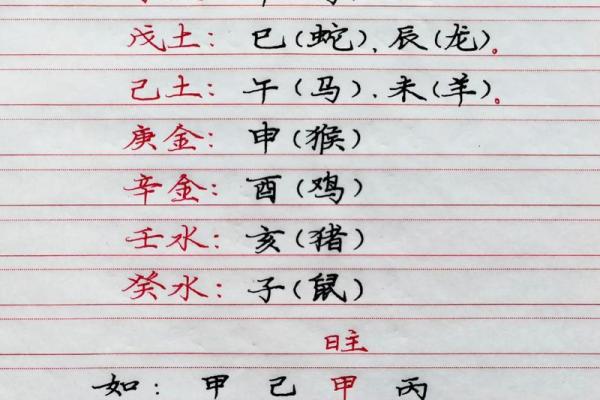 戊土：巳(蛇)、辰(龙)。
己土：午(马)、未(羊)。
庚金：申(猴)
辛金：酉(鸡)
壬水：亥(猪)
癸水：子(鼠)
日主
如：甲 己 甲 丙